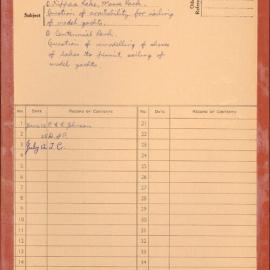 ① Kippax Lake, Moore Park.
Subject Question of availability for sailing
of model yachts.
② Centennial Park.
Question of remodelling of shores
of lakes to permit sailing of
model yachts.
No. DATE RECORD OF CONTENTS No. DATE RECORD OF CONTENTS
1 June Johnson 21
2 22
3 July 12 T.C. 23
4 24
5 25
6 26
7 27
8 28
9 29
10 30
11 31
12 32
13 33
14 34